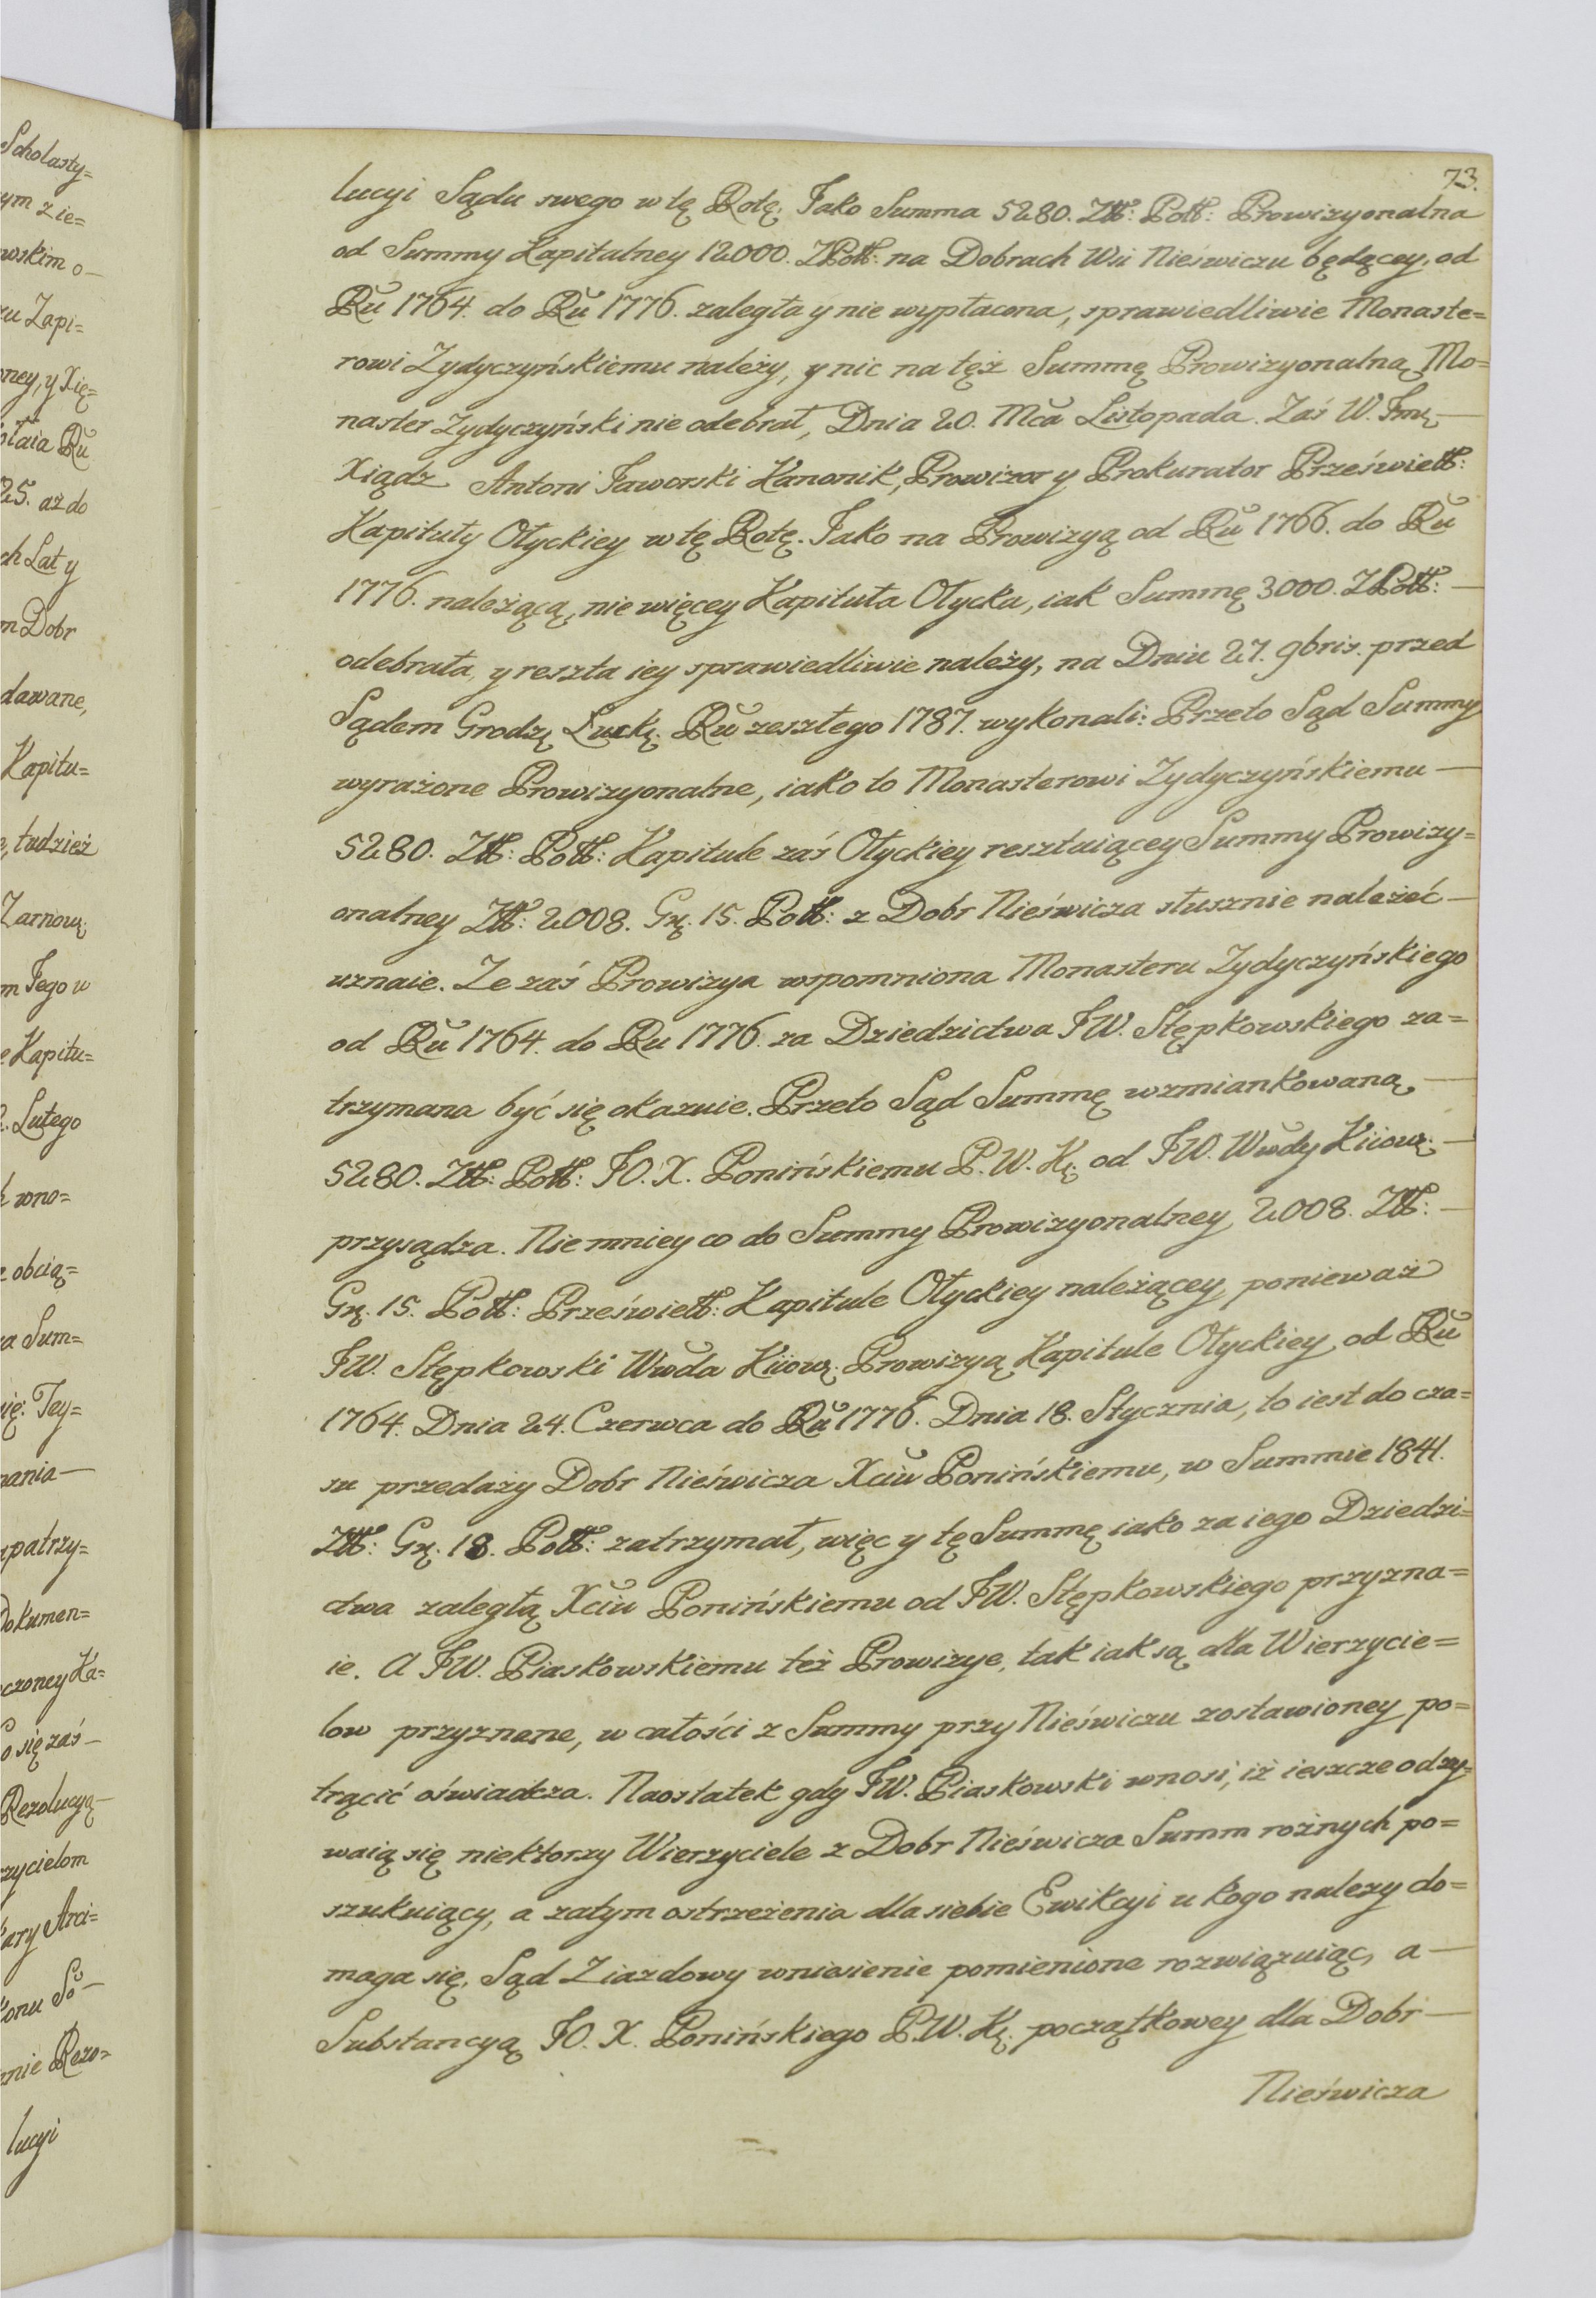 Scholasty=
ym zie=
wskim o—
ru Zapi=
ney, y Xię=
ołaia Ru
25. aż do
ch Lat y
m Dobr
dawane,
Kapitu=
e, tudzież
Zarnową.
m Jego w
e Kapitu=
2. Lutego
ż wno=
z obcią=
a Sum=
się: Tey=
nania—
patrzy=
Dokumen=
czoney Ka=
o się zaś—
Rezolucyą—
rzycielom
ary Arci=
konu Sº—
enie Rezo=
lucyi
73.
lucyi Sądu swego w tę Rotę: Jako Summa 5280. Złł: Poll: Prowizyonalna
od Summy Kapitalney 12000. ZPoll: na Dobrach Wsi Nieświczu będącey, od
Ru 1764. do Ru 1776. zaległa y nie wypłacona, sprawiedliwie Monaste=
rowi Zydyczyńskiemu należy, y nic na tęż Summę Prowizyonalną Mo=
naster Zydyczyński nie odebrał, Dnia 20. Mca Listopada. Zaś W. Jmę—
Xiądz Antoni Jaworski Kanonik, Prowizor y Prokurator Przeświett:
Kapituły Ołyckiey w tę Rotę. Jako na Prowizyą od Ru 1766. do Ru
1776. należącą, nie więcey Kapituła Ołycka, iak Summę 3000. ZPoll:—
odebrała, y reszta iey sprawiedliwie należy, na Dniu 27. 9bris. przed
Sądem Grodzę Łuckę. Ru zeszłego 1787. wykonali: Przeto Sąd Summy
wyrażone Prowizyonalne, iako to Monasterowi Zydyczyńskiemu—
5280. Złł: Poll: Kapitule zaś Ołyckiey resztuiącey Summy Prowizy=
onalney Złł: 2008. Grę. 15. Poll: z Dobr Nieświcza słusznie należeć—
uznaie. Ze zaś Prowizya wspomniona Monasteru Zydyczyńskiego
od Ru 1764. do Ru 1776. za Dziedzictwa JW. Stępkowskiego za=
trzymana być się okazuie. Przeto Sąd Summę wzmiankowaną—
5280. Złł: Poll: JO. X. Ponińskiemu P. W. Kę. od JW. Wwdy Kiiowę.—
przysądza. Niemniey co do Summy Prowizyonalney 2008. Złł:—
Grę. 15. Poll: Przeświett: Kapitule Ołyckiey należącey, ponieważ
JW. Stępkowski Wwda Kiiowę. Prowizyą Kapitule Ołyckiey od Ru
1764. Dnia 24. Czerwca do Ru 1776. Dnia 18. Stycznia, to iest do cza=
su przedaży Dobr Nieświcza Xciu Ponińskiemu, w Summie 1841.
Złł: Grę. 18. Poll: zatrzymał, więc y tę Summę iako za iego Dziedzi=
ctwa zaległą Xciu Ponińskiemu od JW. Stępkowskiego przyzna=
ie. A JW. Piaskowskiemu też Prowizye, tak iak są dla Wierzycie=
low przyznane, w całości z Summy przy Nieświczu zostawioney po=
trącić oświadcza. Naostatek gdy JW. Piaskowski wnosi, iż ieszcze odzy=
waią się niektorzy Wierzyciele z Dobr Nieświcza Summ rożnych po=
szukuiący, a zatym ostrzeżenia dla siebie Ewikcyi u kogo należy do=
maga się. Sąd Ziazdowy wniesienie pomienione rozwiązuiąc, a—
Substancyą JO. X. Ponińskiego P.W. Kę. początkowey dla Dobr—
Nieświcza